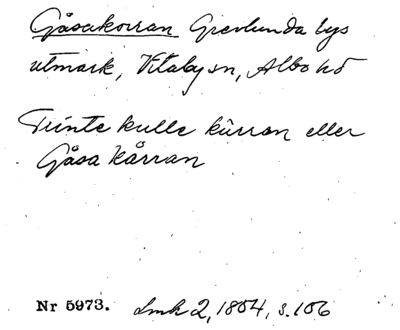 Gåsakorran Grevlunda bys
utmark, Vitaby sn, Albo hd
Tuinte kulle kårran eller
Gåsa Kårran
Nr 5973. Lmk 2, 1804, s. 106